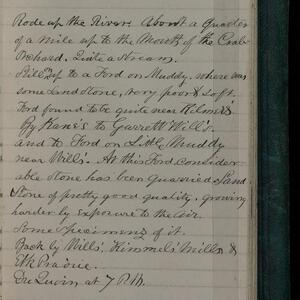 Rode up the River. About a Quarter
of a mile up to the Mouth of the Crab
Orchard. Quite a Stream.
Still up to a Ford on Muddy, where was
some Sand Stone, very poor & soft.
Ford found to be quite near
By Kane's to Garrett Will's.
and to Ford on Little Muddy
near Will's. At this Ford, consider-
able Stone has been Quarried. Sand
Stone of pretty good quality, growing
harder by exposure to the air.
Some Specimens of it.
Back by Wills', Kimmel's Mills &
Elk Prairie.
Du Quoin at 7 P.M.